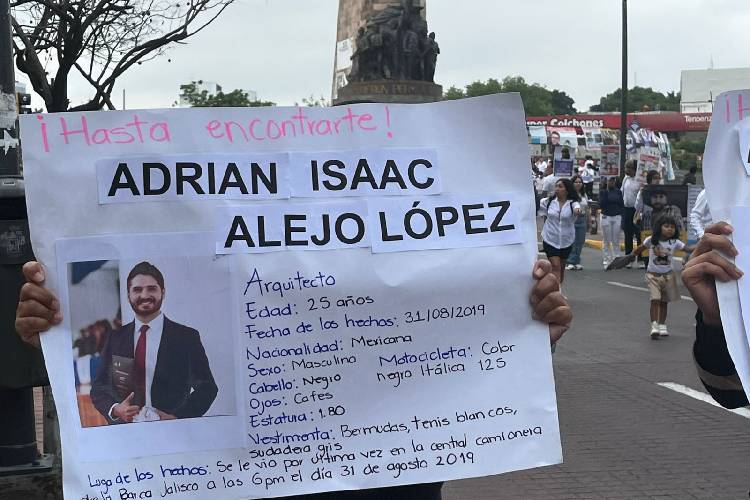 ¡Hasta encontrarte!
ADRIAN ISAAC
ALEJO LÓPEZ
Arquitecto
Edad: 25 años
Fecha de los hechos: 31/08/2019
Nacionalidad: Mexicana
Sexo: Masculino
Motocicleta: Color
negro Itálica 125
Cabello: Negro
Ojos: Cafes
Estatura: 1.80
Vestimenta: Bermudas, tenis blancos,
sudadera gris
Lugo de los hechos: Se le vio por última vez en la central camionera
de la Barca Jalisco a las 6pm el día 31 de agosto 2019
Colchones